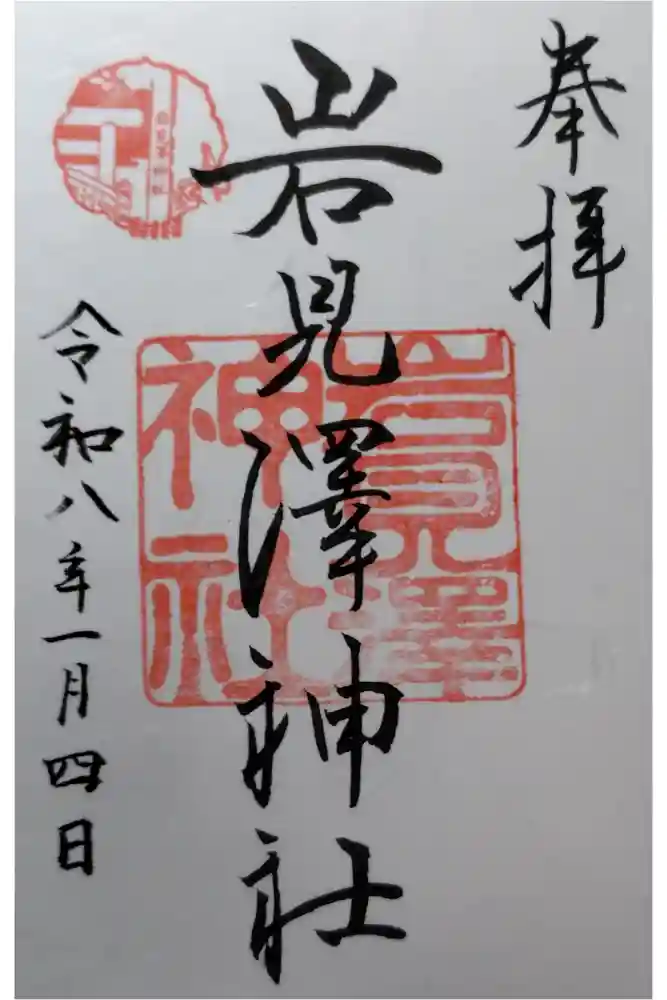 奉拝
岩見澤神社
岩見澤神社
令和八年一月四日